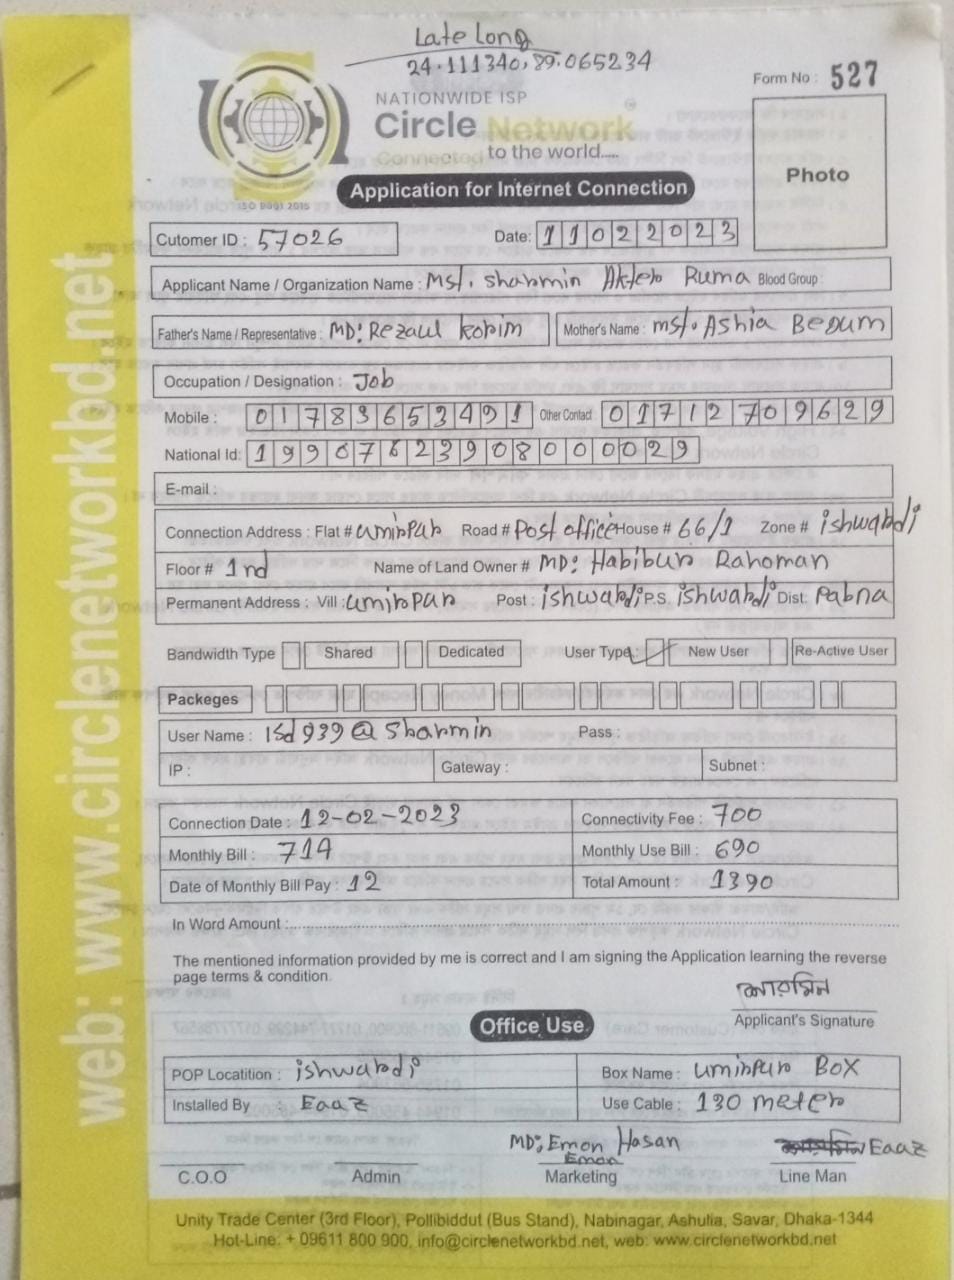 Late Long
24.111340, 89.065234
Form No : 527
NATIONWIDE ISP
Circle Network
Connected to the world.....
ISO 9001 2015
Photo
Application for Internet Connection
Cutomer ID : 57026 Date: 11022023
Applicant Name / Organization Name : Mst. Sharmin Akter Ruma Blood Group :
Father's Name / Representative : MD: Rezaul Korim Mother's Name : mst. Ashia Begum
Occupation / Designation : Job
Mobile : 01783653491 Other Contact 01712709629
National Id: 19967623908000029
E-mail :
Connection Address : Flat # umirpur Road # Post office House # 66/1 Zone # ishwardi
Floor # 1nd Name of Land Owner # MD: Habibur Rahoman
Permanent Address : Vill : umirpur Post : ishwardi P.S. ishwardi Dist. Pabna
Bandwidth Type Shared Dedicated User Type New User Re-Active User
Packeges
User Name : Isd939@Sharmin Pass :
IP : Gateway : Subnet :
Connection Date : 12-02-2023 Connectivity Fee : 700
Monthly Bill : 714 Monthly Use Bill : 690
Date of Monthly Bill Pay : 12 Total Amount : 1390
In Word Amount :
The mentioned information provided by me is correct and I am signing the Application learning the reverse
page terms & condition.
শারমিন
Applicant's Signature
Office Use
POP Locatition : ishwardi Box Name : umirpur BOX
Installed By : Eaaz Use Cable : 130 meter
MD: Emon Hasan
Emon
Eaaz
C.O.O Admin Marketing Line Man
Unity Trade Center (3rd Floor), Pollibiddut (Bus Stand), Nabinagar, Ashulia, Savar, Dhaka-1344
Hot-Line: + 09611 800 900, info@circlenetworkbd.net, web: www.circlenetworkbd.net
web: www.circlenetworkbd.net